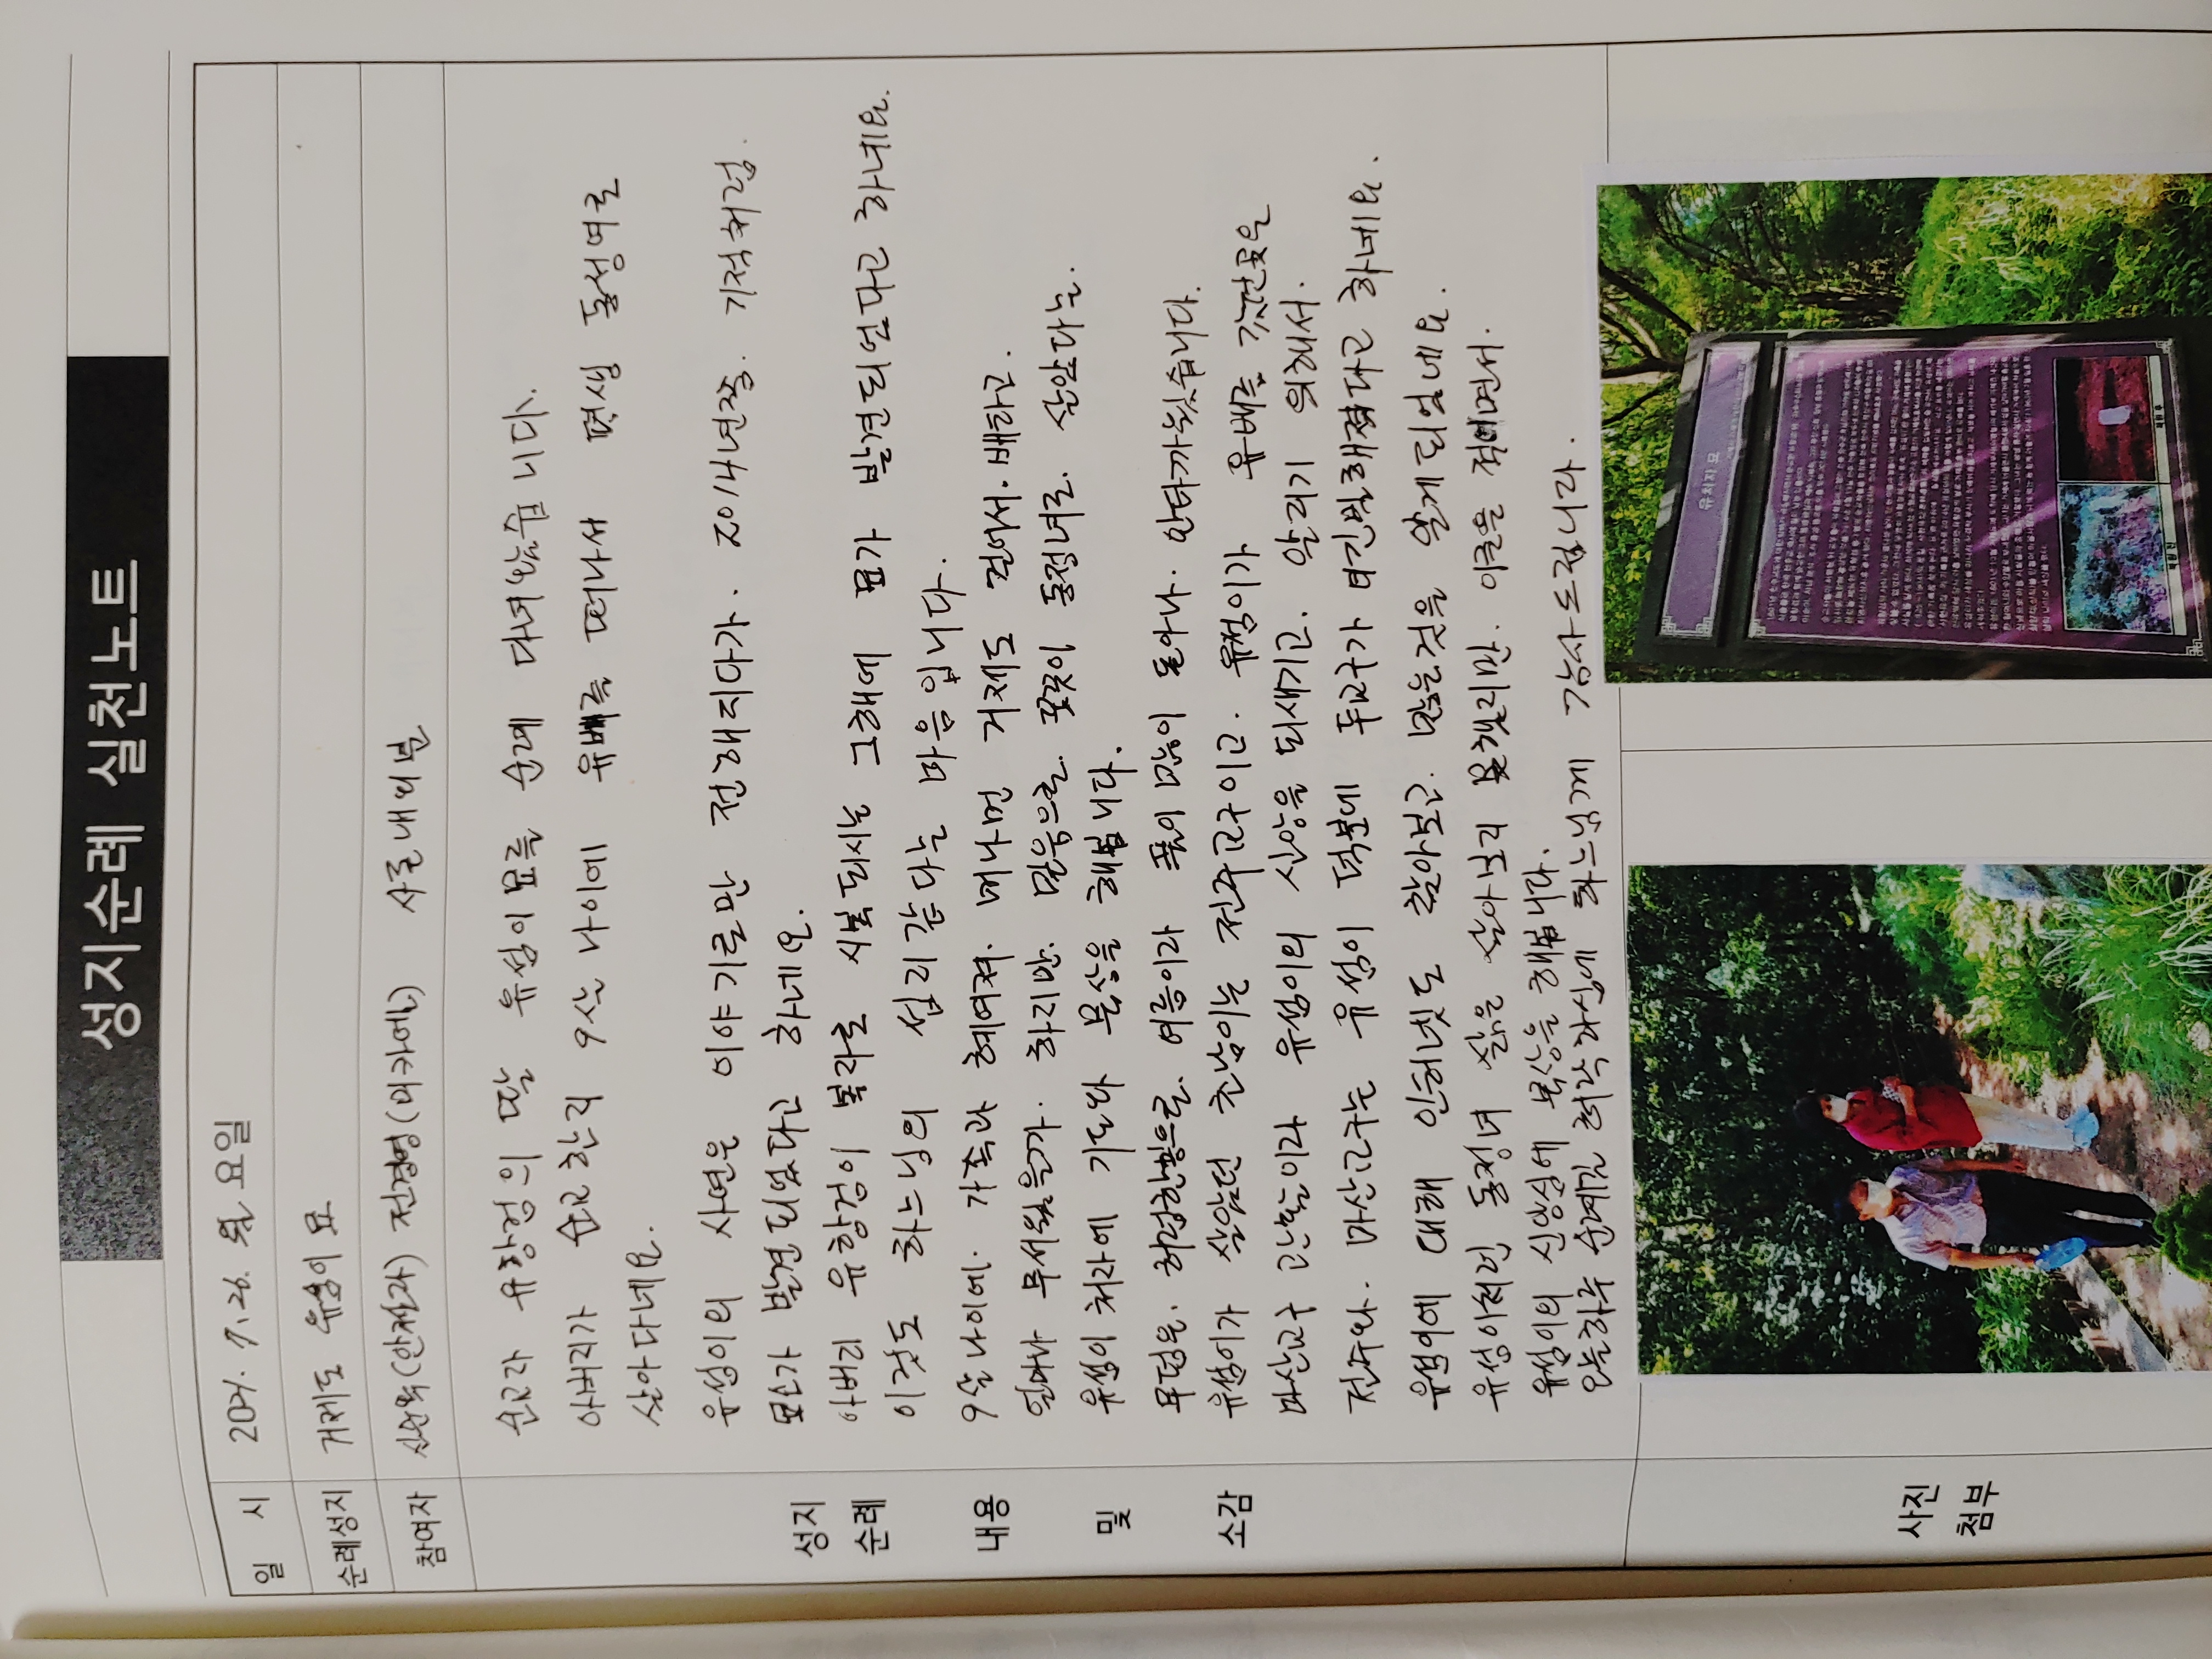 성지순례 실천노트
일 시 7. 26. 월 요일
순례성지 거제도 유섬이 묘
참여자 (안젤라) (미카엘) 사로내외분
성지 순례 내용 및 소감
순교자 유항검의 딸 유섬이묘를 순례 다녀왔습니다.
아버지가 순교한뒤 9살 나이에 유배를 떠나서 평생 동정녀로
살아다네요.
유섬이의 사연은 이야기로만 전해지다가. 2014년쯤. 기적처럼.
묘소가 발견되었다고 하네요.
아버지 유항검이 복자로 시복되시는 그해에 묘가 발견되었다고 하네요.
이것도 하느님의 섭리같다는 마음입니다.
9살나이에. 가족과 헤여져. 머나먼 거제도 건어서. 배타고.
얼마나 무서웠을가. 하지만. 믿음으로. 꿋꿋이 동정녀로. 살았다는.
유섬이 처자에 기도와 묵상을 해봅니다.
무덤은. 허럼한봉으로. 여름이라 풀이 많이 돋아나. 안타가웠습니다.
유섬이가 살았던 초남이는 전주교구이고. 유섬이가 유배를 갓던곳은
마산교구 관활이라 유섬이의 신앙을 되새기고. 알리기 위해서.
전주와. 마산교구는 유섬이 덕분에 두교구가 더긴밀해젔다고 하네요.
유섬이에 대해 인터넷도 찾아보고. 많은것을 알게되었네요.
유섬이처런 동정녀 삶을 살아보지 못했지만. 이글을 적으면서.
유섬이의 신앙심에 묵상을 해봅니다.
오늘하루 순례길 허락하심에 하느님게 감사드립니다.
사진 첨부
유처자묘